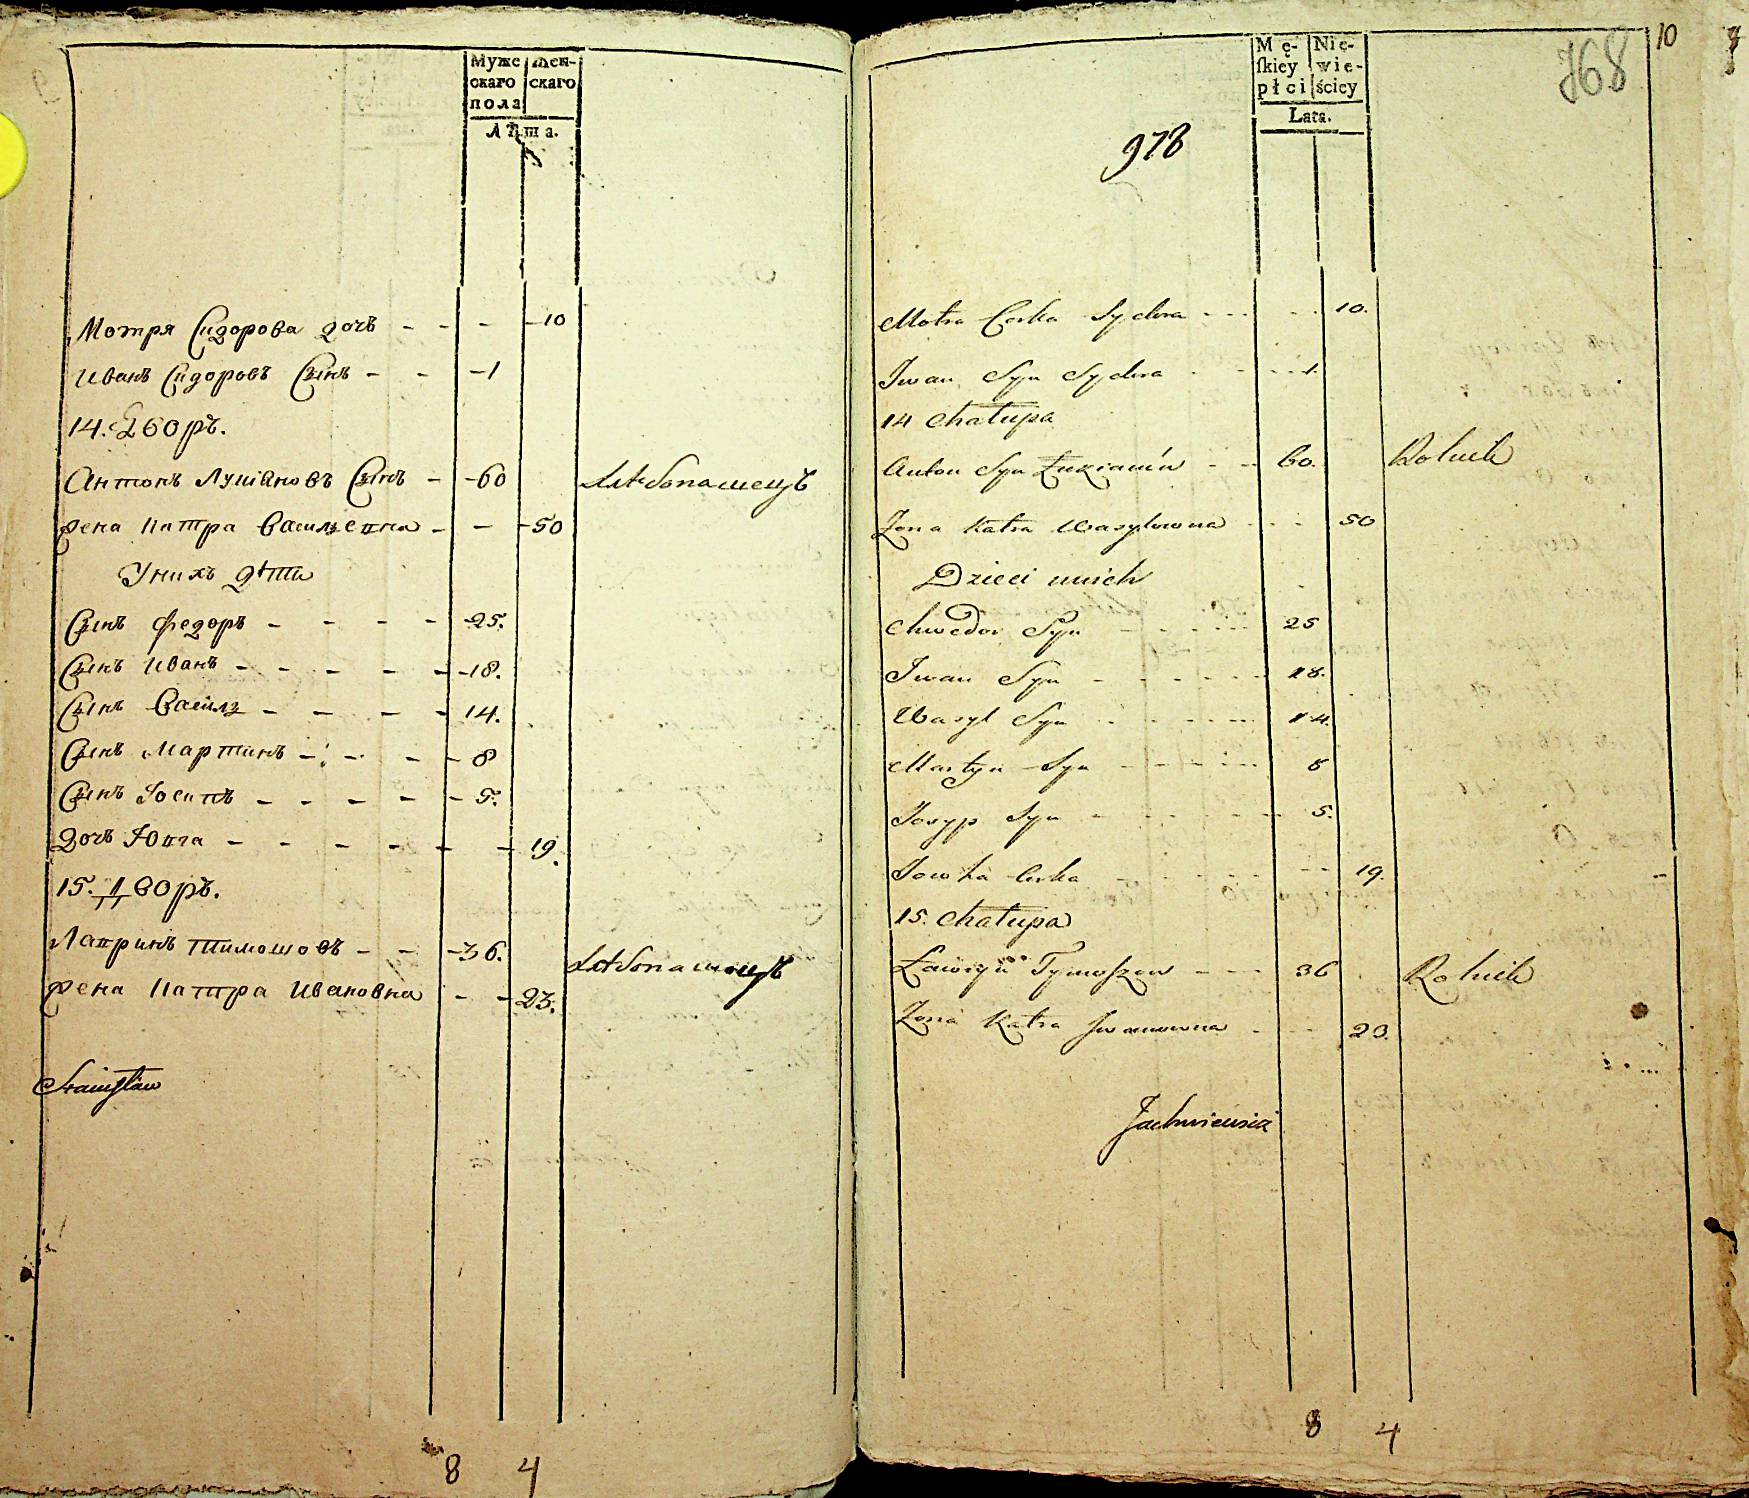 Муже
скаго
пола
Жен-
скаго
Лѣта.
Мотря Сидорова дочь - - - - 10
Иванъ Сидоровъ Сынъ - - - 1
14. Дворъ.
Антонъ Лукіановъ Сынъ - - 60 Хлѣбопашецъ
жена Катра Васильевна - - - 50
У нихъ дѣти
Сынъ Федоръ - - - - - 25.
Сынъ Иванъ - - - - - - 18.
Сынъ Василь - - - - - 14.
Сынъ Мартинъ - - - - 8
Сынъ Іосипъ - - - - - 5.
Дочь Ювга - - - - - - - 19.
15. Дворъ.
Лавринъ Тимошовъ - - - 36. Хлѣбопашецъ
жена Катра Ивановна - - 23.
Stanisław
8 4
10
768
Mę-
ſkiey
płci
Nie-
wie-
ściey
Lata.
978
Motra Corka Sydora - - - - - 10.
Iwan Syn Sydora - - - - 1.
14 Chałupa
Anton Syn Łukianów - - - 60. Rolnik
Zona Katra Wasylowna - - - 50
Dzieci u nich
Chwedor Syn - - - - - 25
Iwan Syn - - - - - - 18.
Wasyl Syn - - - - - - 14.
Martyn Syn - - - - - - 8
Josyp Syn - - - - - - 5.
Jowha Corka - - - - - - - 19.
15. Chałupa
Ławryn Tymoszow - - - - 36 Rolnik
Zona Katra Iwanowna - - - 23.
8 4